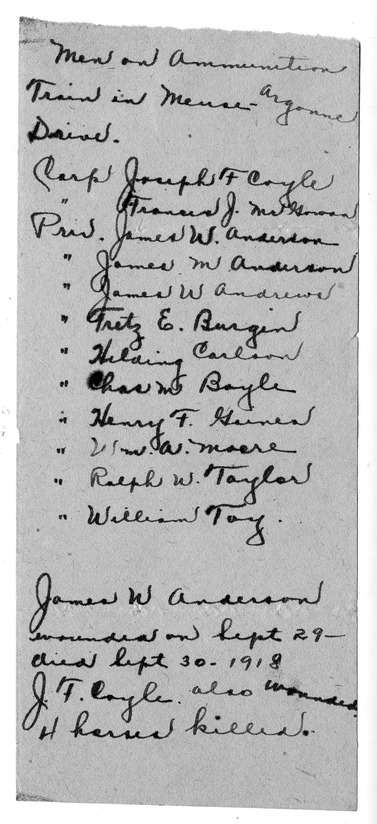 Men on Ammunition
Train in Meuse-Argonne
Drive.
Corp Joseph F Coyle
" Francis J. McGowan
Priv. James W. Anderson
" James M Anderson
" James W Andrews
" Fritz E. Burgin
" Hilding Carlson
" Chas M Boyle
" Henry F. Gaines
" Wm. A. Moore
" Ralph W. Taylor
" William Toy.
James W Anderson
wounded on Sept 29-
died Sept 30-1918
J. F. Coyle. also wounded.
4 horses killed.